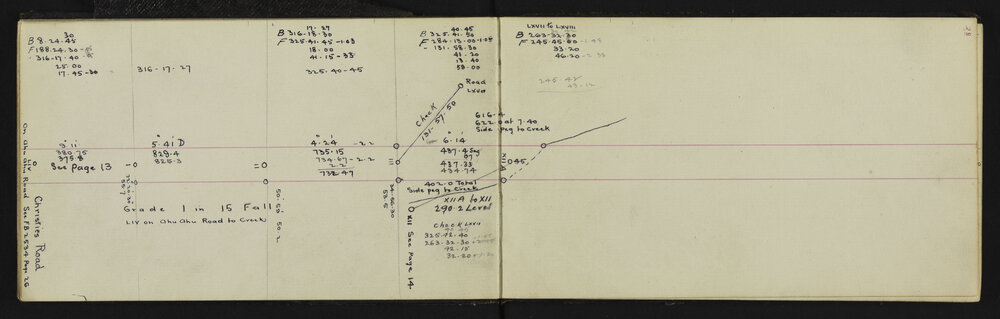 30
B 8.24.45
F 188.24.30
316.17.40
25.00
17.45-30
316-17-27
17.27
B 316-18-30
F 325.41.45-1.03
18.00
41.15-33
325.40-45
40.45
B 325.41.50
F 284-13-00-1.08
- 131-58.30
41.20
13.40
59.00
LXVII to LXVIII
B 263-32-30
F 245-45-00
33.20
46.20
28
Road
LXVII
Check
131-57-50
616.4
622.0 at 7.40
Side peg to Creek
5° 11'
380.75
375.8
See Page 13
5° 41' D
829.4
825.3
4° 24' -2.2
735.15
734.67-2.2
2.2
732.47
6° 14'
437.4 Seg
07
437.33
434.74
XII A
045
402.0 Total
Side peg to Creek
XII A to XII
290.2 Level
Grade 1 in 15 Fall
LIV on Ahu Ahu Road to Creek
50.2
XII See Page 14.
Check LXVII
325-42.40
263-32.30
42.15
32.20
On Ahu Ahu Road See FB 2534 Page 26
LIV
Christies Road